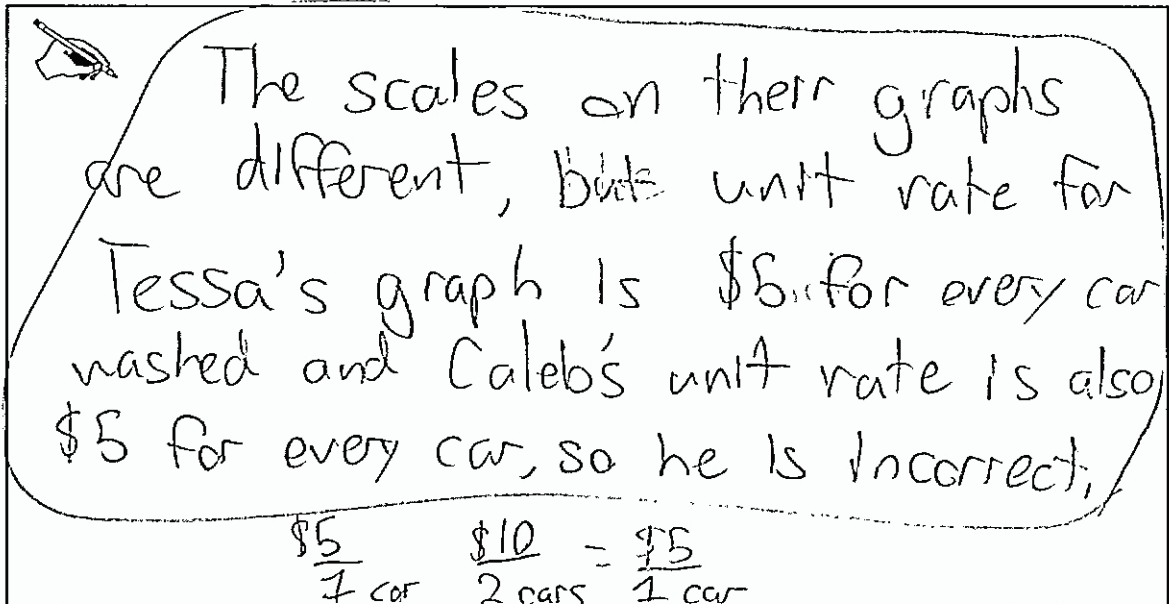 The scales on their graphs
are different, but unit rate for
Tessa's graph is $5 for every car
washed and Caleb's unit rate is also
$5 for every car, so he is incorrect.
$5/1 car $10/2 cars = $5/1 car